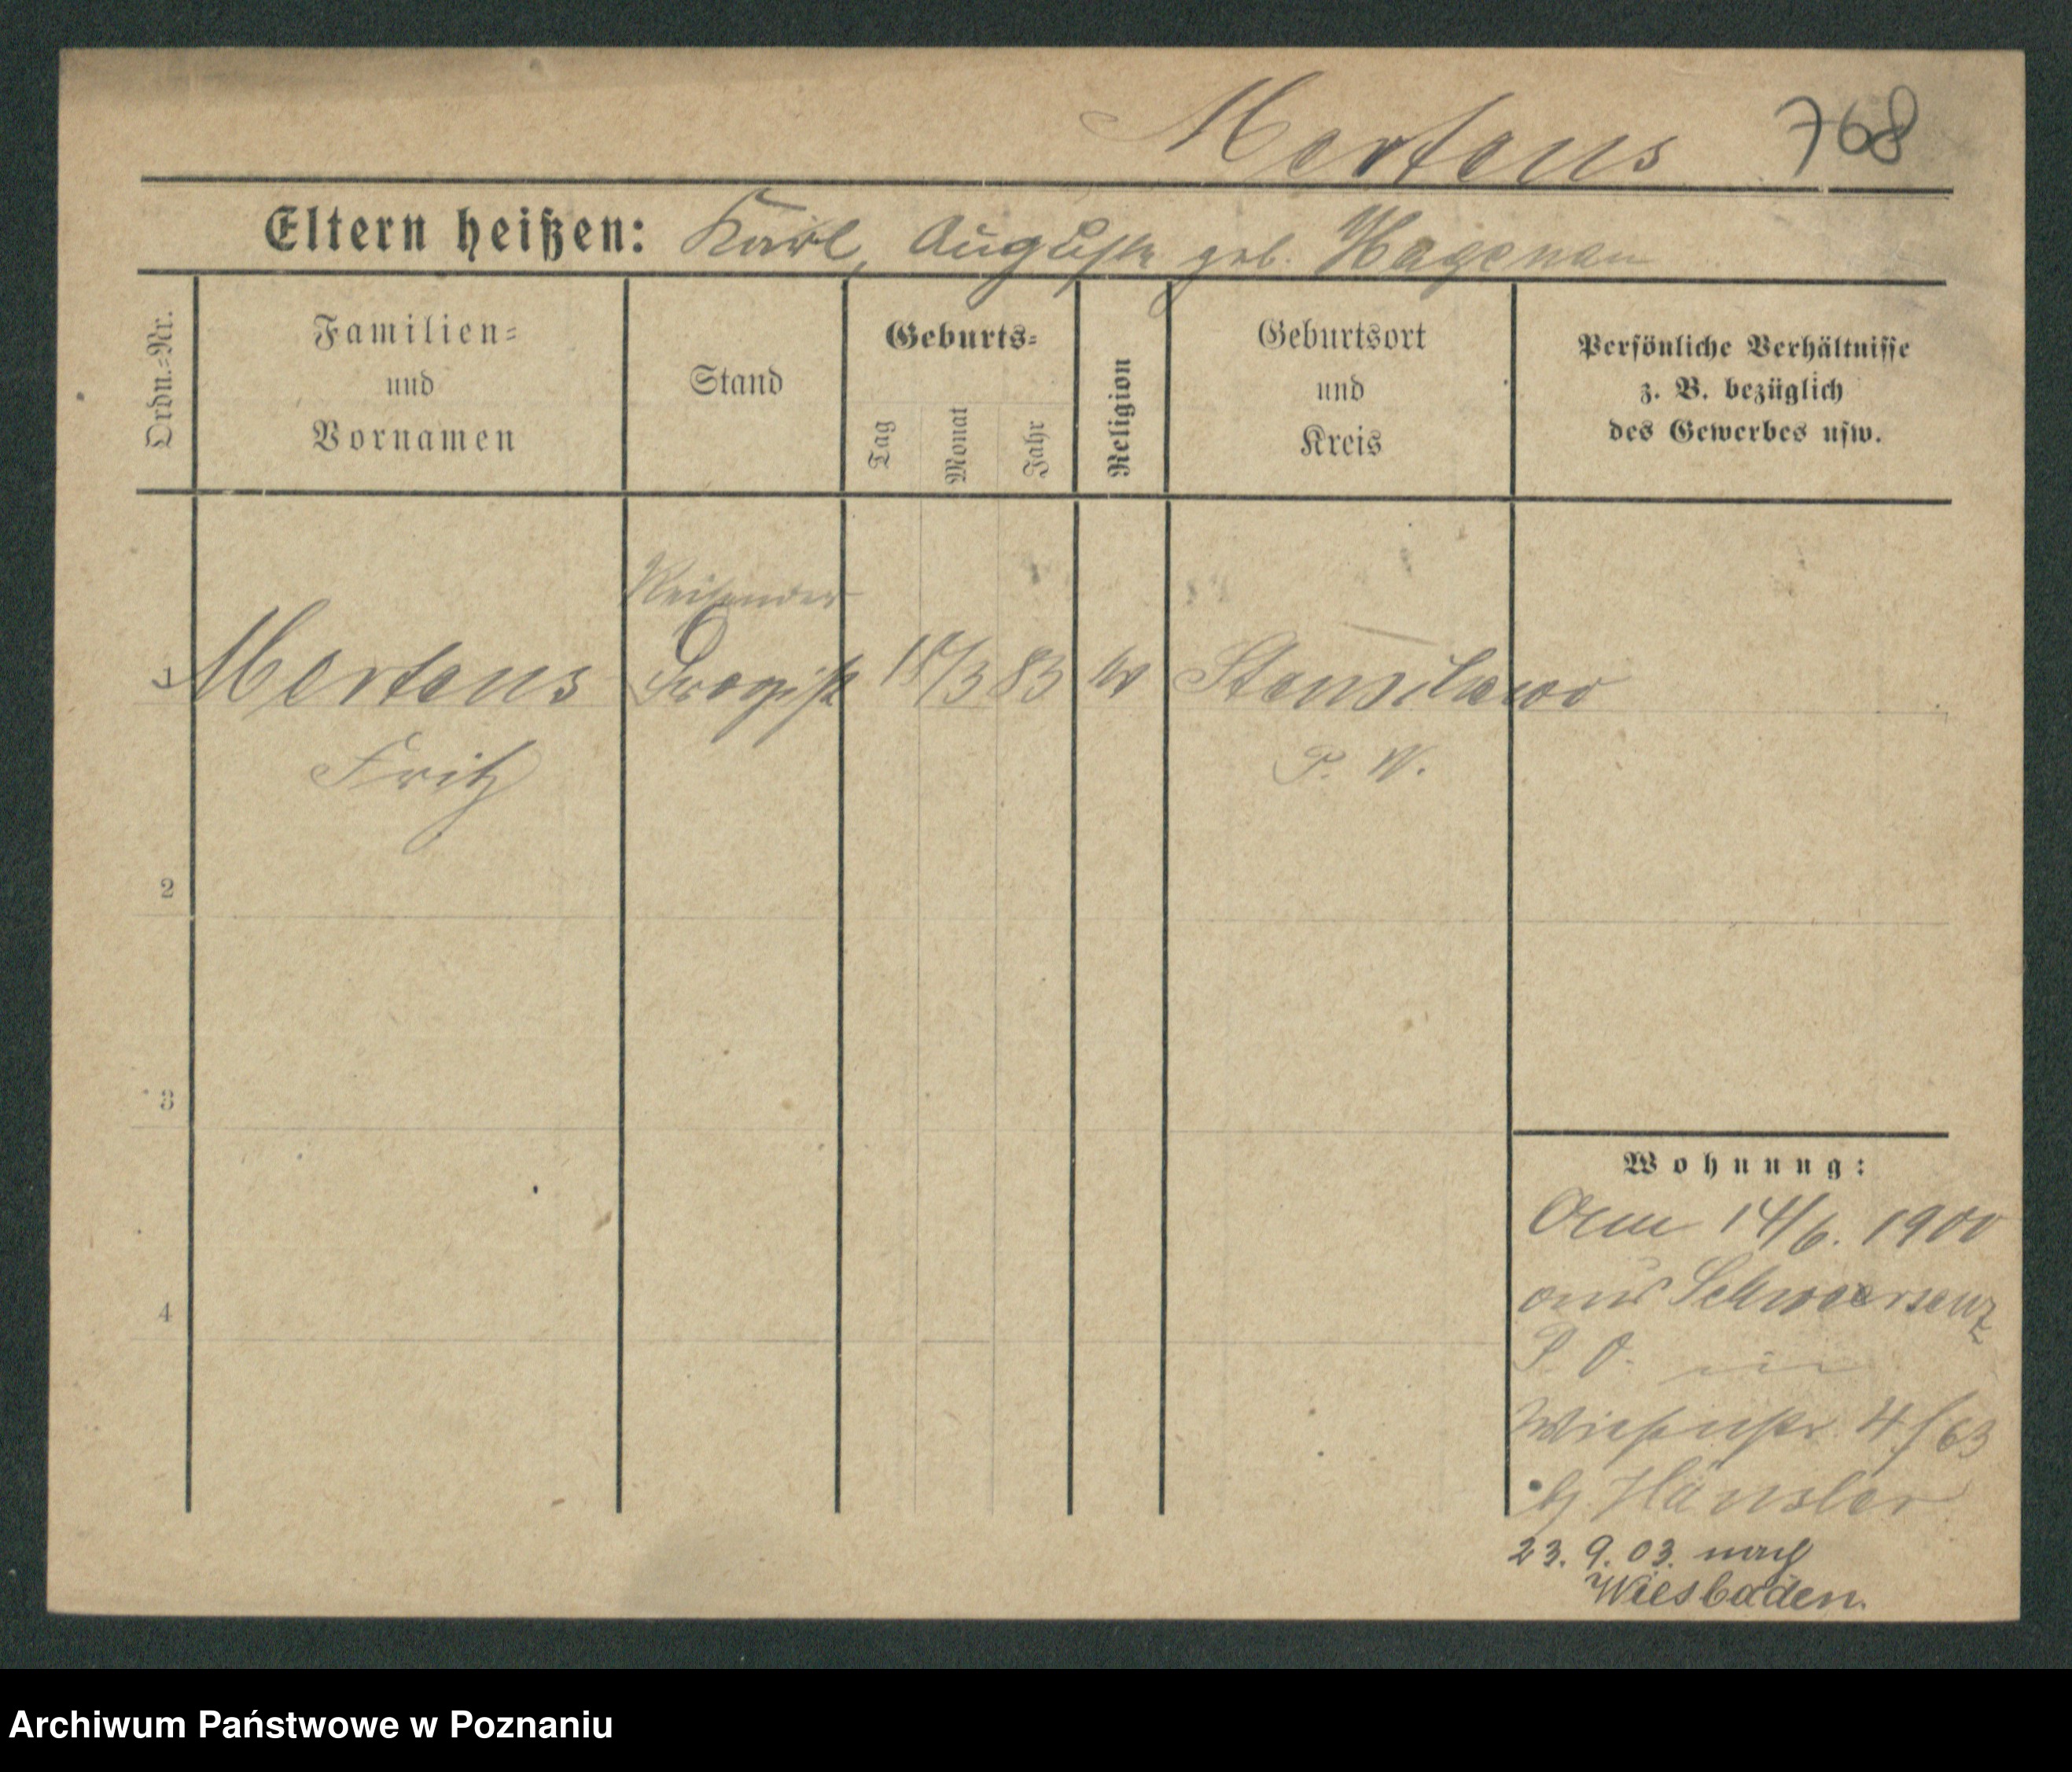 Mertens 768
Eltern heißen: Karl, Auguste geb. Hagenau
Ordn.=Nr.
Familien=
und
Vornamen
Stand
Geburts=
Tag
Monat
Jahr
Religion
Geburtsort
und
Kreis
Persönliche Verhältnisse
z. B. bezüglich
des Gewerbes usw.
Reisender
1 Mertens Drogist 18/3 83
Fritz P. W.
2
3
4
Wohnung:
14/6. 1900
aus Schwersenz
P. O. in
Wiesenstr. 4/63
b/ Hänsler
23. 9. 03. nach
Wiesbaden.
Archiwum Państwowe w Poznaniu